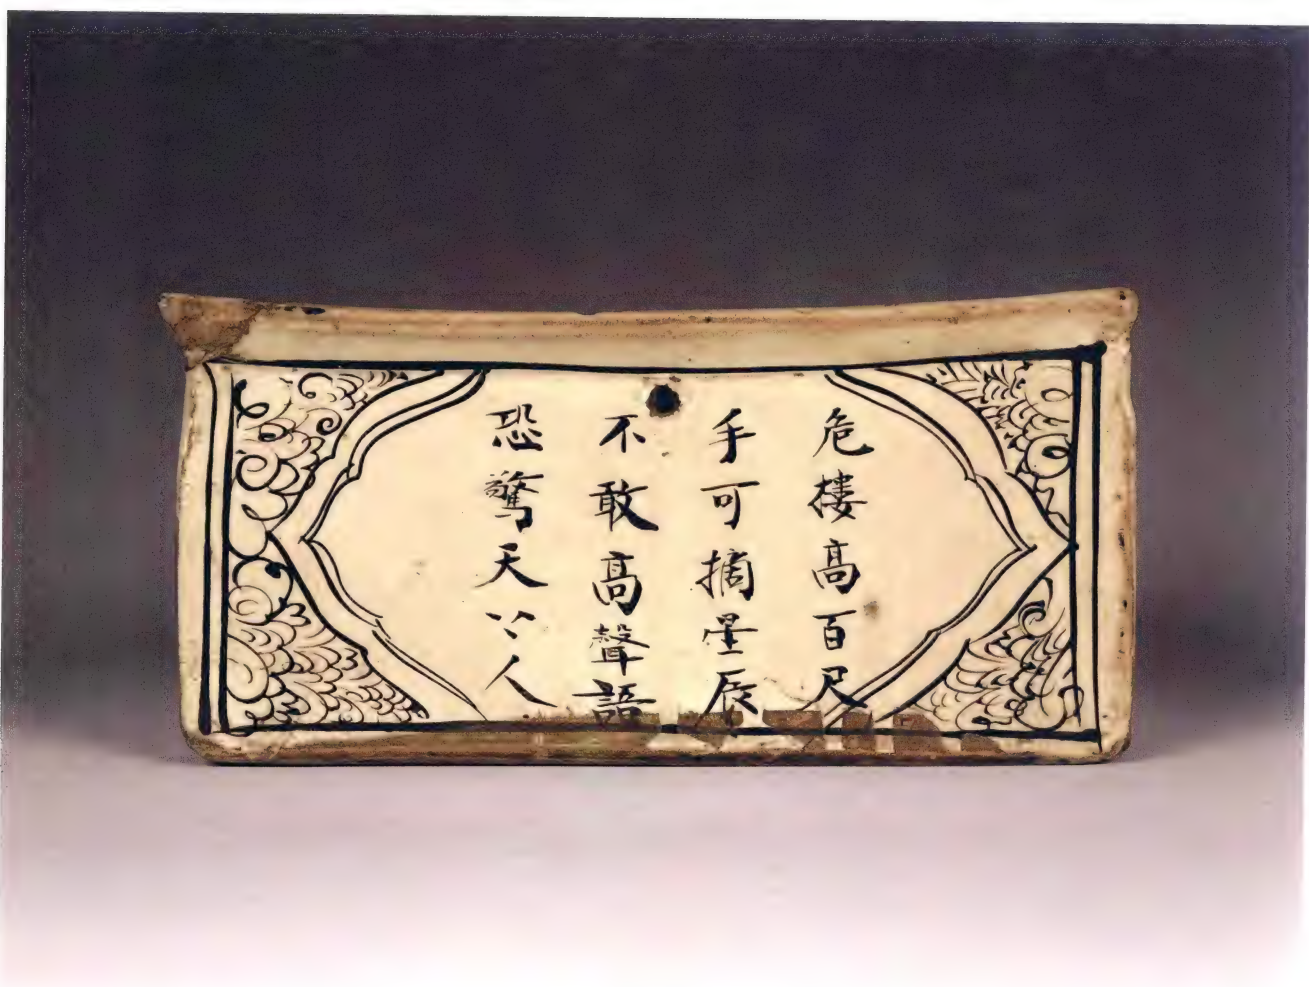 危樓高百尺
手可摘星辰
不敢高聲語
恐驚天上人